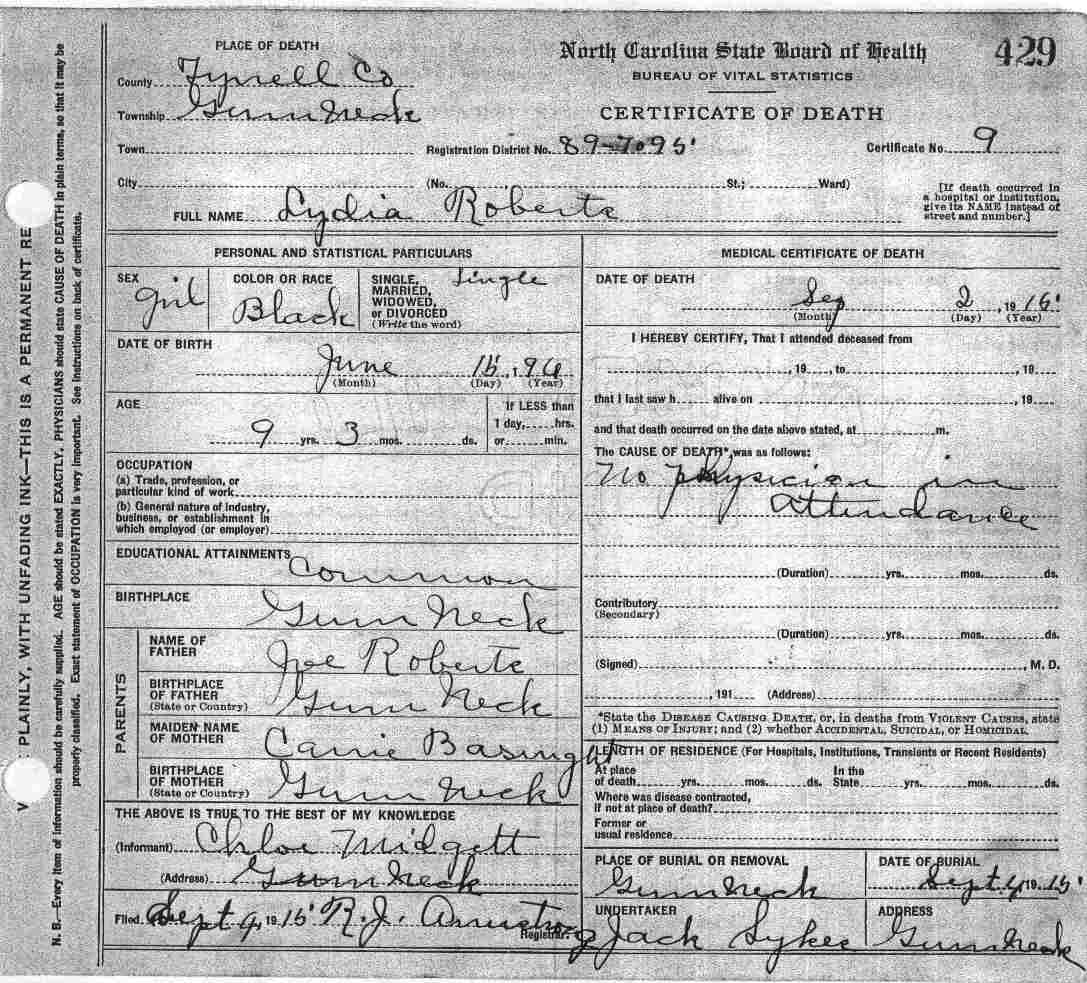 PLACE OF DEATH
North Carolina State Board of Health
429
BUREAU OF VITAL STATISTICS
County Tyrrell Co
CERTIFICATE OF DEATH
Township Gum Neck
Town
Registration District No. 89-7095
Certificate No. 9
City (No. St.; Ward)
[If death occurred in
a hospital or institution,
give its NAME instead of
street and number.]
FULL NAME Lydia Roberts
PERSONAL AND STATISTICAL PARTICULARS
SEX girl
COLOR OR RACE Black
SINGLE, MARRIED, WIDOWED, or DIVORCED (Write the word) Single
DATE OF BIRTH
June 15, 96
(Month) (Day) (Year)
AGE
9 yrs. 3 mos. ds.
If LESS than
1 day, hrs.
or min.
OCCUPATION
(a) Trade, profession, or
particular kind of work
(b) General nature of industry,
business, or establishment in
which employed (or employer)
EDUCATIONAL ATTAINMENTS Common
BIRTHPLACE Gum Neck
PARENTS
NAME OF FATHER Joe Roberts
BIRTHPLACE OF FATHER (State or Country) Gum Neck
MAIDEN NAME OF MOTHER Carrie Basnight
BIRTHPLACE OF MOTHER (State or Country) Gum Neck
THE ABOVE IS TRUE TO THE BEST OF MY KNOWLEDGE
(Informant) Chloe Midgett
(Address) Gum Neck
Filed Sept 9, 1915 R. J. Armstrong
Registrar.
MEDICAL CERTIFICATE OF DEATH
DATE OF DEATH
Sep 2, 1915
(Month) (Day) (Year)
I HEREBY CERTIFY, That I attended deceased from
, 19 , to , 19
that I last saw h alive on , 19
and that death occurred on the date above stated, at m.
The CAUSE OF DEATH*, was as follows:
No physician in
Attendance
(Duration) yrs. mos. ds.
Contributory
(Secondary)
(Duration) yrs. mos. ds.
(Signed) , M. D.
, 191 (Address)
*State the DISEASE CAUSING DEATH, or, in deaths from VIOLENT CAUSES, state
(1) MEANS OF INJURY; and (2) whether ACCIDENTAL, SUICIDAL, or HOMICIDAL.
LENGTH OF RESIDENCE (For Hospitals, Institutions, Transients or Recent Residents)
At place of death yrs. mos. ds. In the State yrs. mos. ds.
Where was disease contracted,
if not at place of death?
Former or
usual residence
PLACE OF BURIAL OR REMOVAL
Gum Neck
DATE OF BURIAL
Sept 4 1915
UNDERTAKER
Jack Sykes
ADDRESS
Gum Neck
PLAINLY, WITH UNFADING INK—THIS IS A PERMANENT RE
N. B.—Every item of information should be carefully supplied. AGE should be stated EXACTLY. PHYSICIANS should state CAUSE OF DEATH in plain terms, so that it may be
properly classified. Exact statement of OCCUPATION is very important. See instructions on back of certificate.